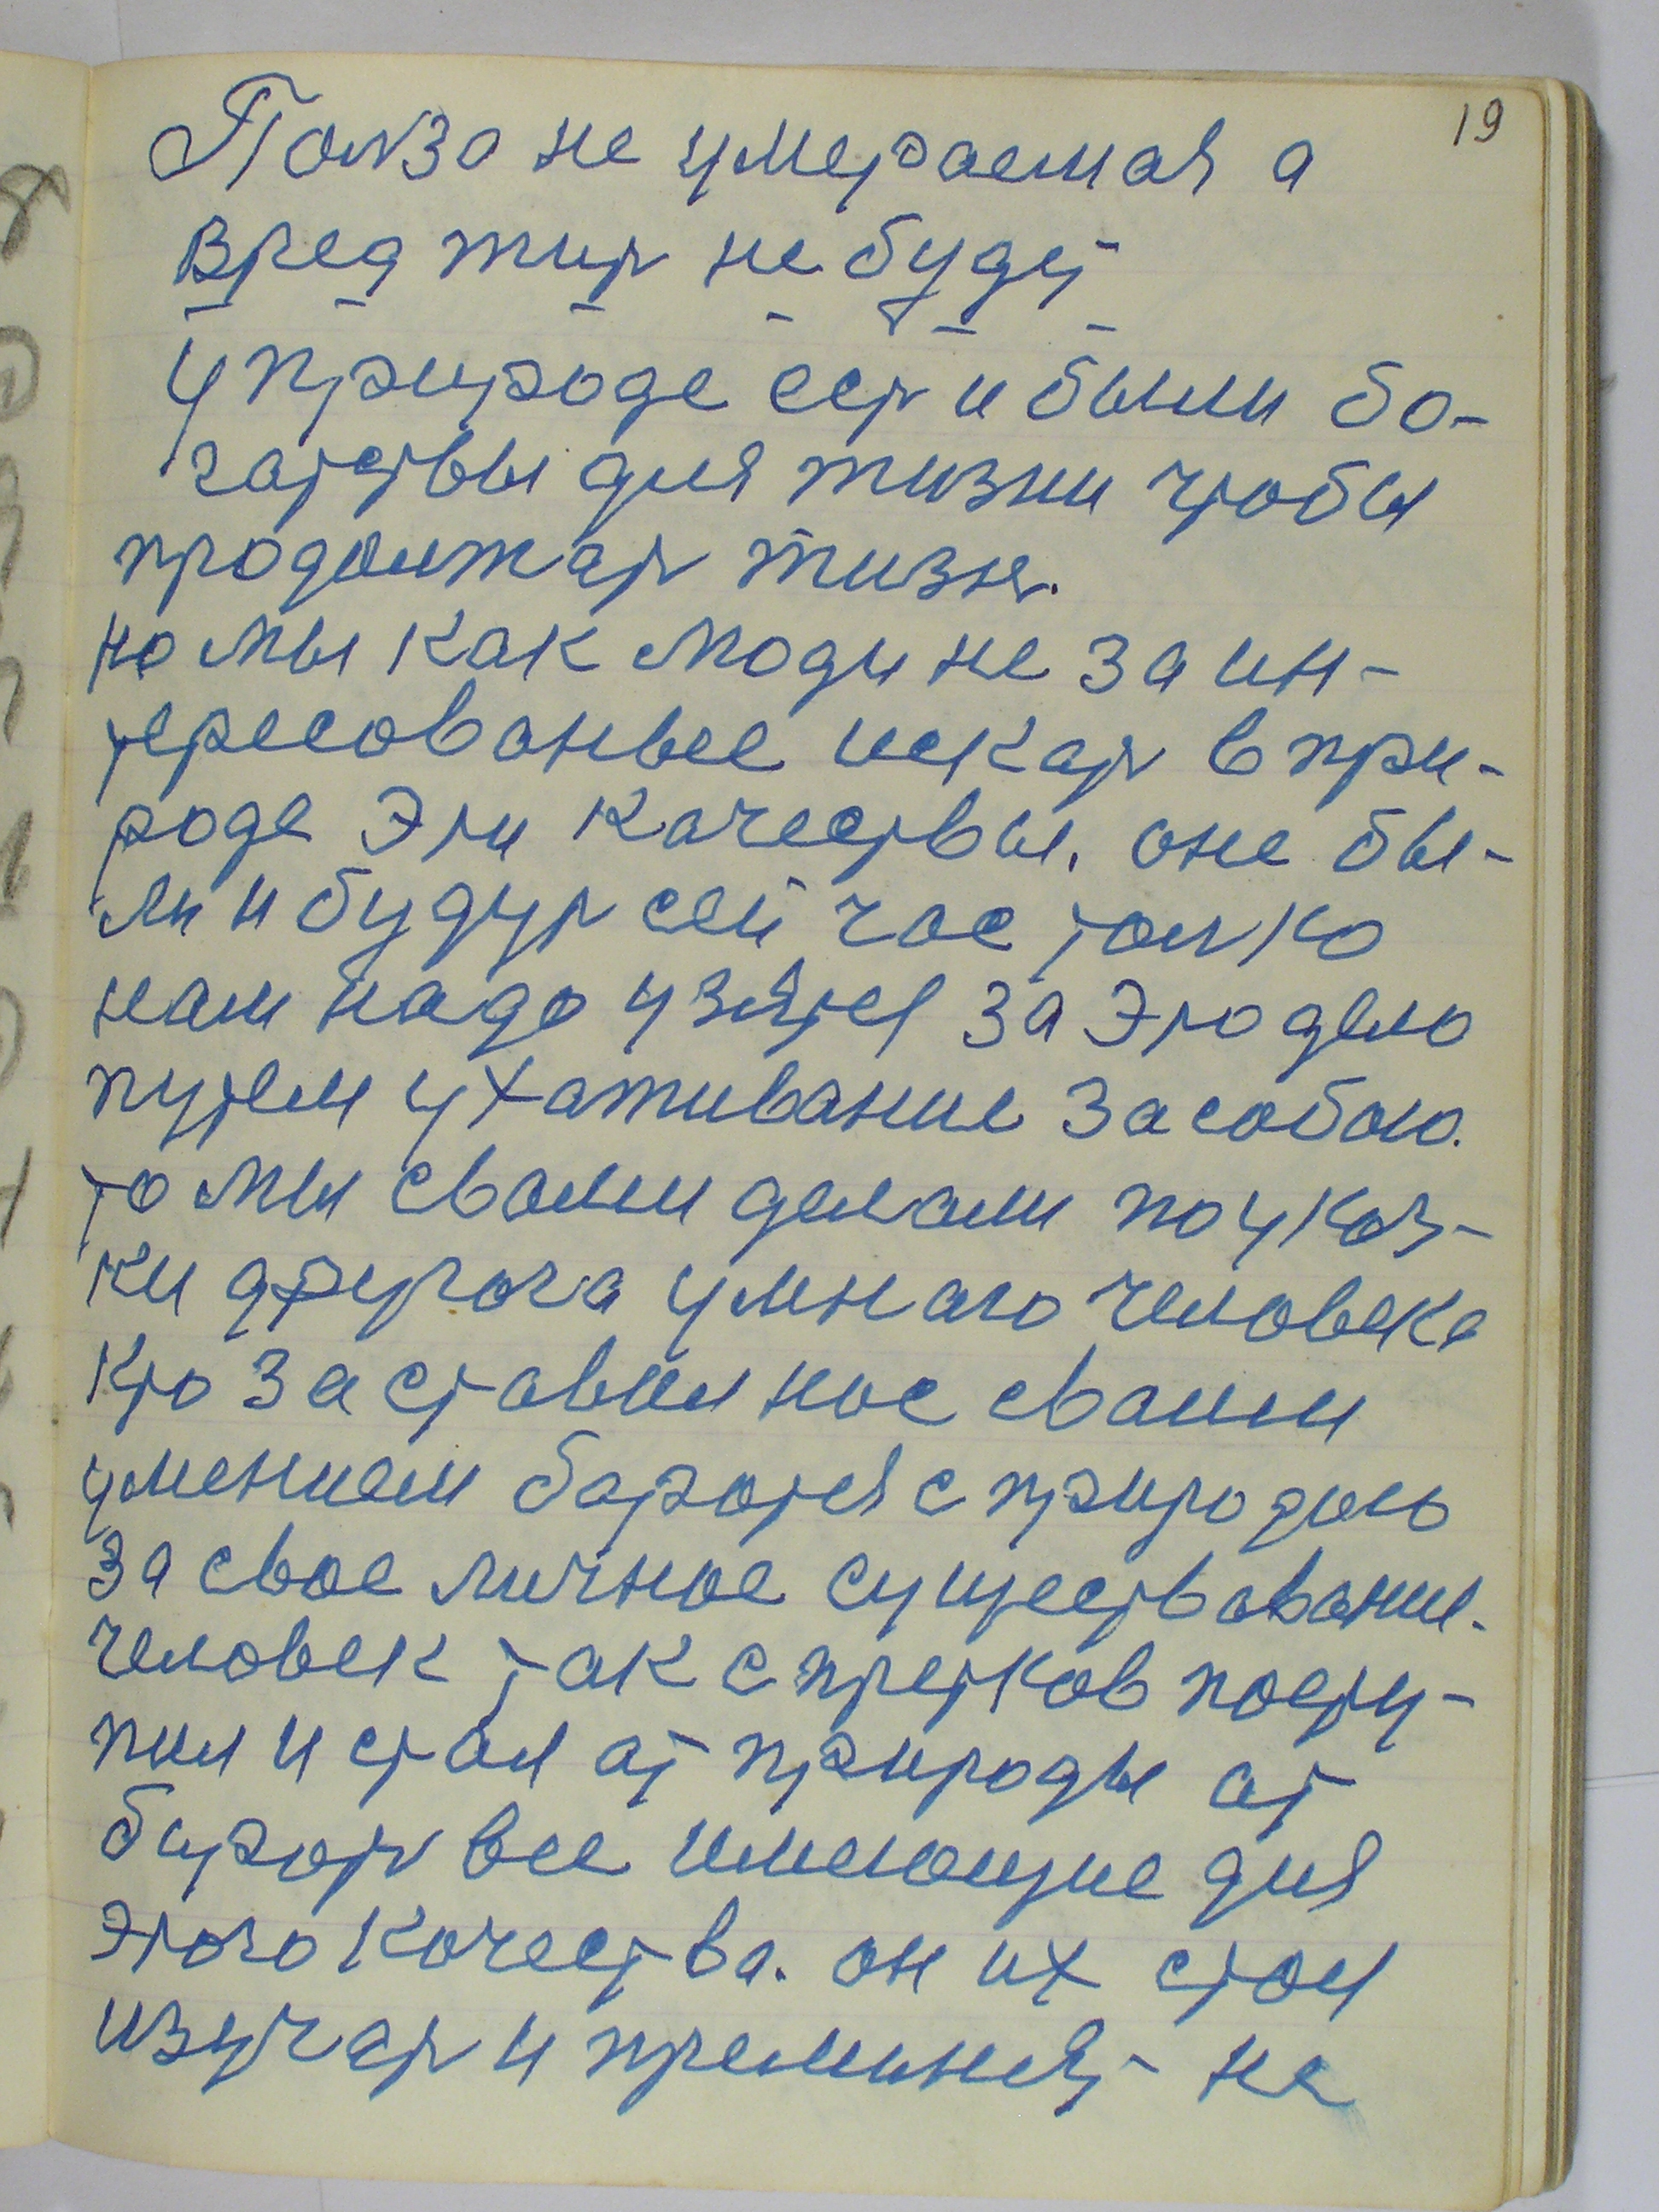 19
Ползо не умераемая а
вред жить не будет
У природе есть и были бо-
гатствы для жизни чтобы
продолжать жизнь.
но мы как люди не заин-
тересованные искать в при-
роде эти качествы. оне бы-
ли и будуть сей час только
нам надо узятся за это дело
путем ухаживание за собою.
то мы своими делами по указ-
ки другога умнаго человека
кто заставил нас сваим
умением баротся с природою
за свое личное существование.
человек так с предков посту-
пил и стал от природы от
бирать все имеющие для
этого качества. он их стал
изучать и применять на